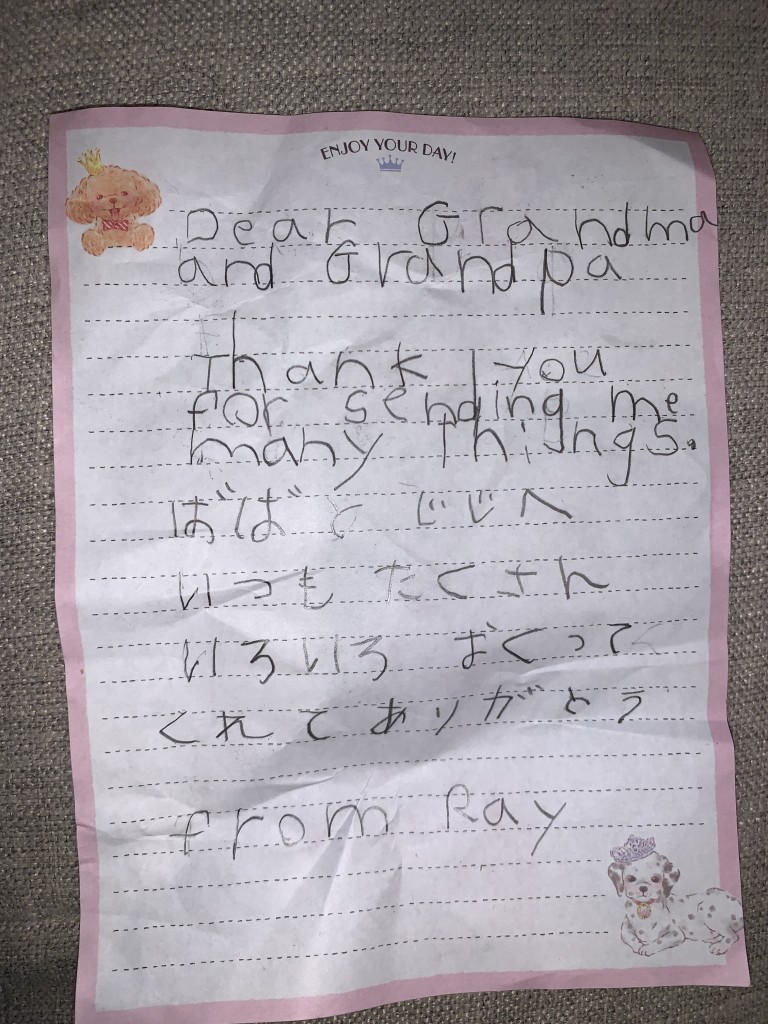 ENJOY YOUR DAY!
Dear Grandma
and Grandpa
Thank you
for sending me
many things.
ばばと じじへ
いつも たくさん
いろいろ おくって
くれてありがとう
from Ray